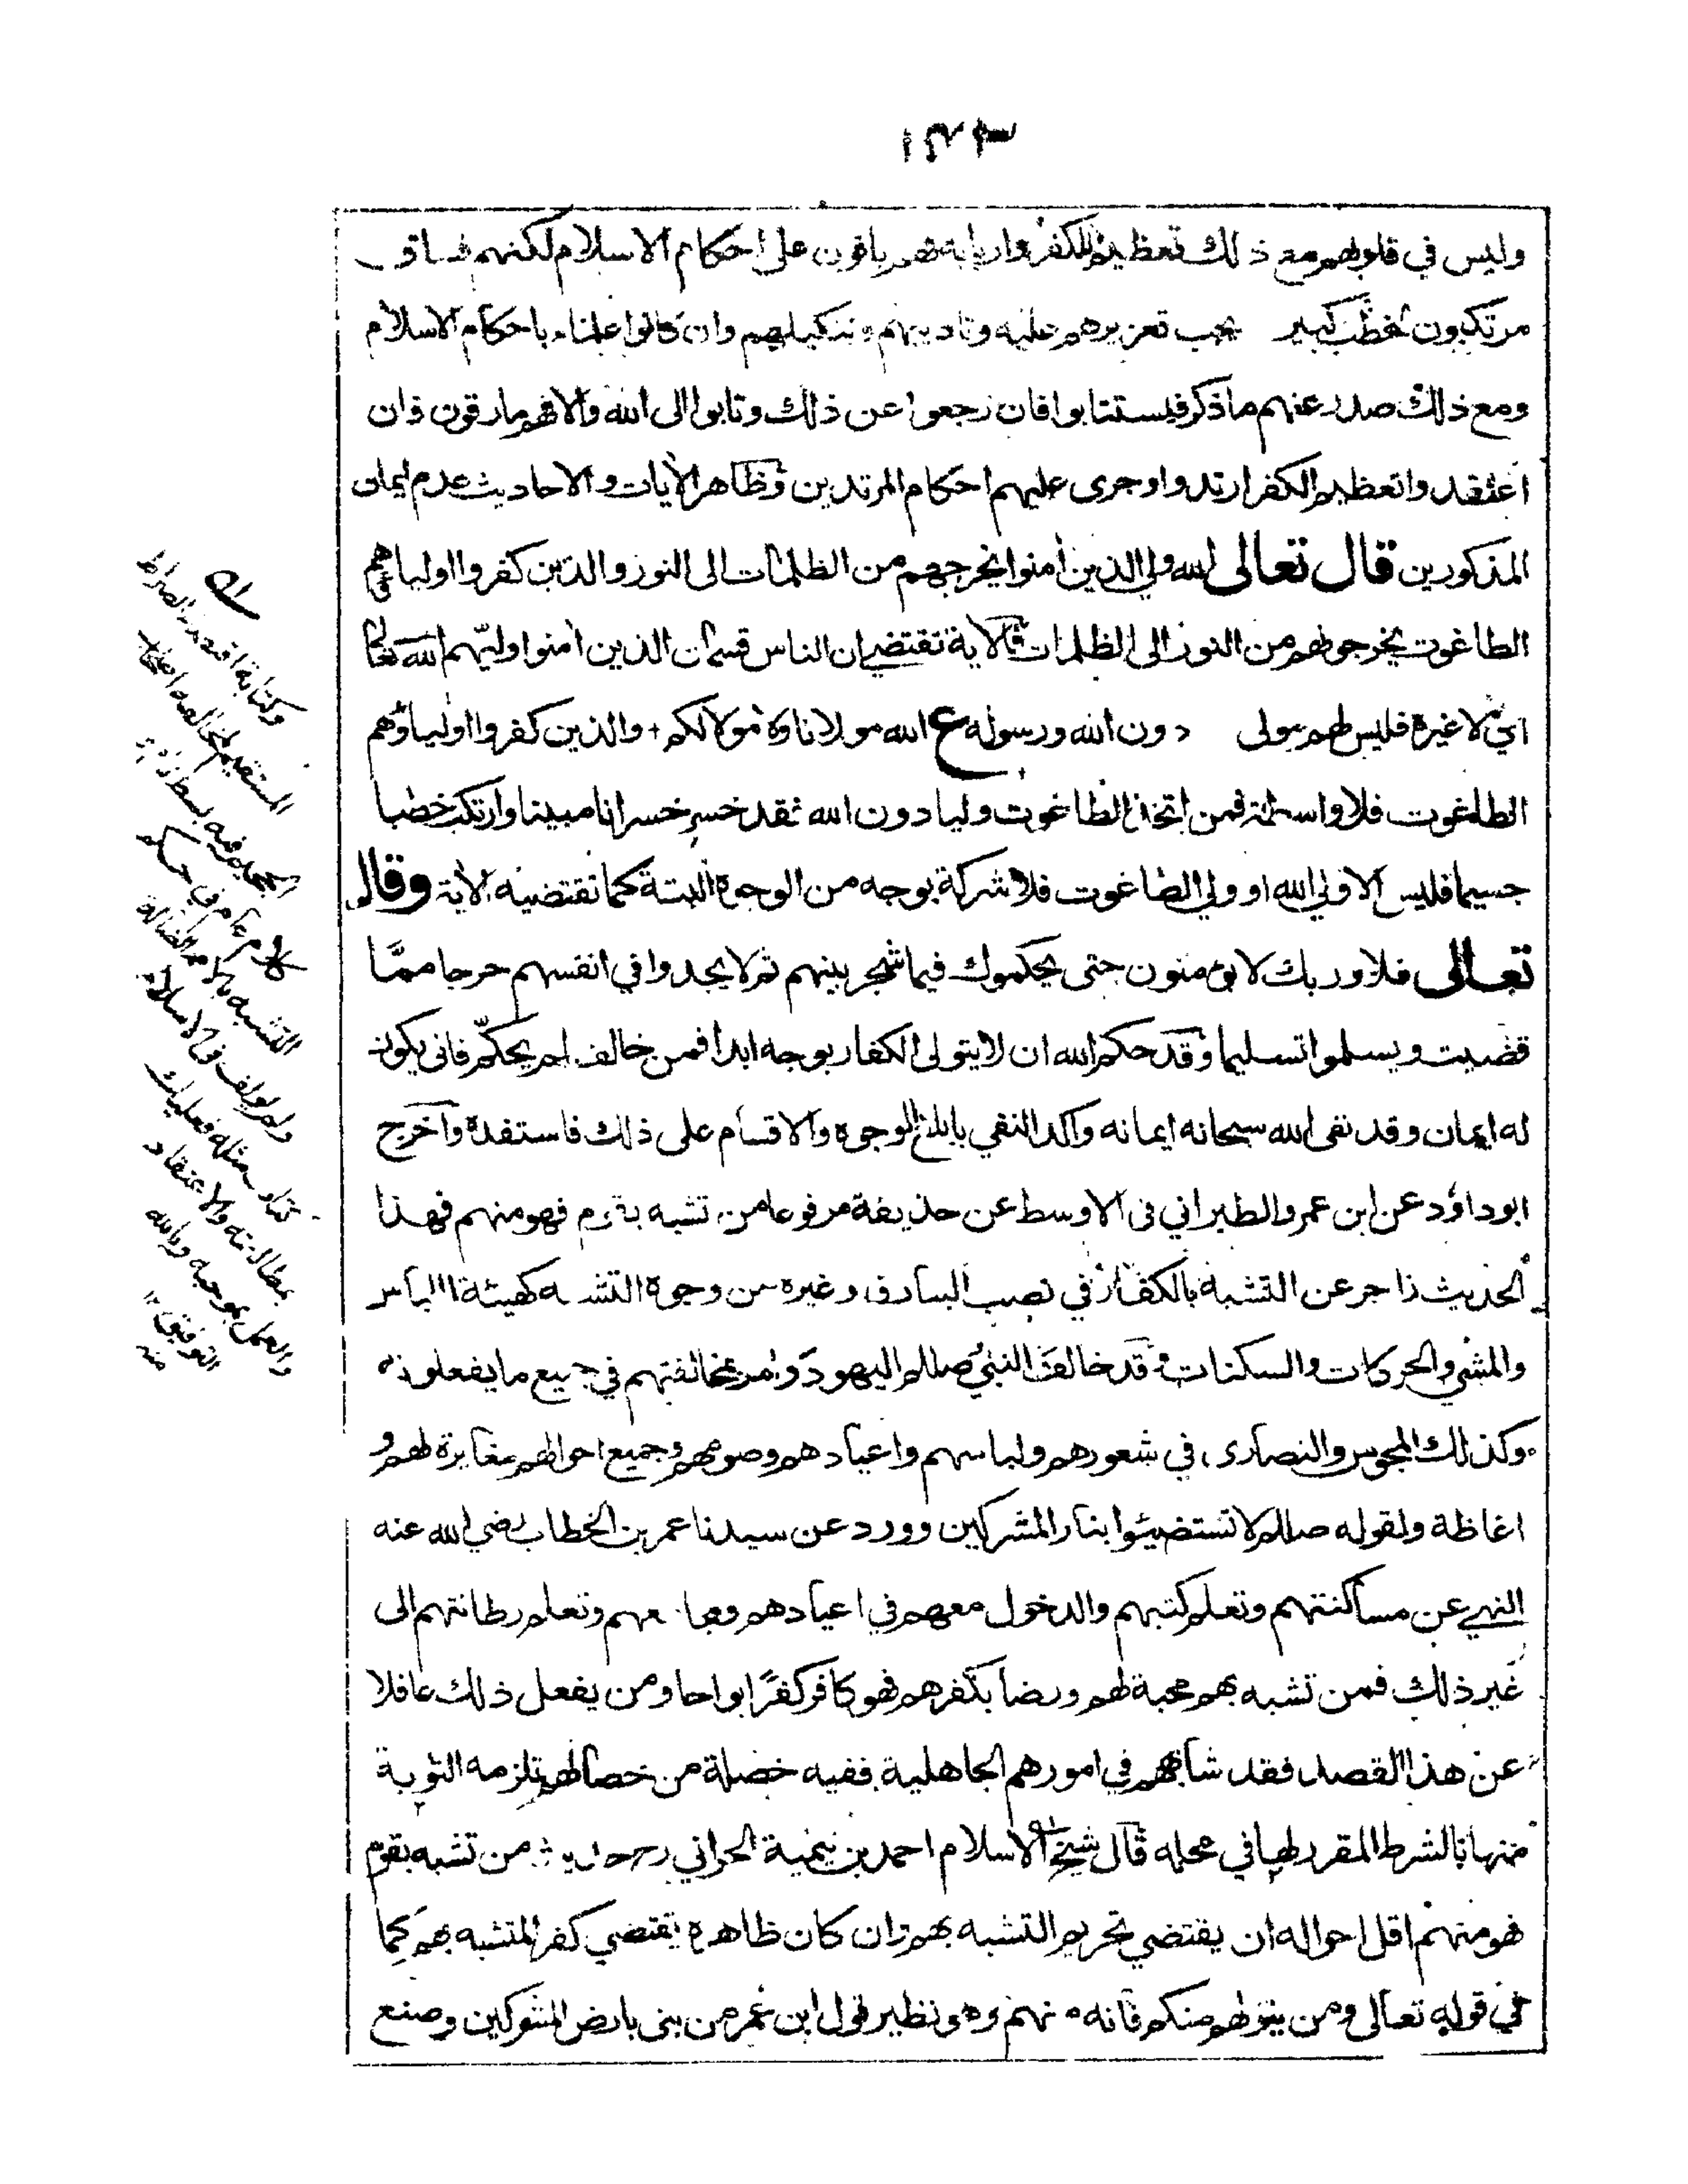 وليس في قلوبهم مع ذلك تعظيم للكفر واربابه فهم باقون على احكام الاسلام لكنهم فساق
مرتكبون لخطب كبير يجب تعزيرهم عليه وتاديبهم وتنكيلهم وان كانوا علماء باحكام الاسلام
ومع ذلك صدر عنهم ما ذكر فيستتابوا فان رجعوا عن ذلك وتابوا الى الله والا فهم مارقون فان
اعتقدوا تعظيم الكفر ارتدوا وجرى عليهم احكام المرتدين وظاهر الآيات والاحاديث عدم ايمان
المذكورين قال تعالى الله ولي الذين أمنوا يخرجهم من الظلمات الى النور والذين كفروا اولياءهم
الطاغوت يخرجونهم من النور الى الظلمات فالاية تقتضي ان الناس قسمان الذين أمنوا وليّهم الله تعالى
اي لا غيره فليس لهم مولى دون الله ورسوله ع الله مولانا ولا مولالكم + والذين كفروا اولياؤهم
الطاغوت فلا واسطة فمن اتخذ الطاغوت وليا دون الله فقد خسر خسرانا مبينا وارتكب خطبا
جسيما فليس الا ولي الله او ولي الطاغوت فلا شركة بوجه من الوجوه البتة كما تقتضيه الأية وقال
تعالى فلا وربك لا يؤمنون حتى يحكموك فيما شجر بينهم ثم لا يجدوا في انفسهم حرجا ممّا
قضيت ويسلموا تسليما وقد حكم الله ان لا يتولى الكفار بوجه ابدا فمن خالف لم يحكّم فانى يكون
له ايمان وقد نفى الله سبحانه ايمانه واكد النفي بابلغ الوجوه والاقسام على ذلك فاستفده وأخرج
ابو داؤد عن ابن عمر والطبراني في الاوسط عن حذيفة مرفوعا من تشبه بقوم فهو منهم فهذا
الحديث زاجر عن التشبه بالكفار في نصب البيارق وغيره من وجوه التشبه كهيئة اللباس
والمشي والحركات والسكنات وقد خالف النبي صللم اليهود وامر بمخالفتهم في جميع ما يفعلونه
وكذلك المجوس والنصارى في شعورهم ولباسهم واعيادهم وصومهم وجميع احوالهم مغايرة لهم و
اغاظة ولقوله صللم لا تستضيئوا بنار المشركين وورد عن سيدنا عمر بن الخطاب رضي الله عنه
النهي عن مساكنتهم وتعلم كتبهم والدخول معهم في اعيادهم وتعلم رطانتهم الى
غير ذلك فمن تشبه بهم محبة لهم ورضا بكفرهم فهو كافر كفرًا بواحا ومن يفعل ذلك غافلا
عن هذا القصد فقد شابههم في امورهم الجاهلية ففيه خصلة من خصالهم تلزمه التوبة
منها بالشرط المقرر لها في محله قال شيخ الاسلام احمد بن تيمية الحراني رح حديث من تشبه بقوم
فهو منهم اقل احواله ان يقتضي تحريم التشبه بهم وان كان ظاهره يقتضي كفر المتشبه بهم كما
في قوله تعالى ومن يتولهم منكم فانه منهم وهو نظير قول ابن عمر من بنى بارض المشركين وصنع
وكتابة اقتضاء الصراط
المستقيم لمخالفة اصحاب
الجحيم فيه بسط
كلام عام في حكم
التشبه بالامم الضالة
ولم يؤلف في الاسلام
كتاب مثله فعليك
بمطالعته والاعتقاد
والعمل بموجبه وبالله
التوفيق ١٢
منه